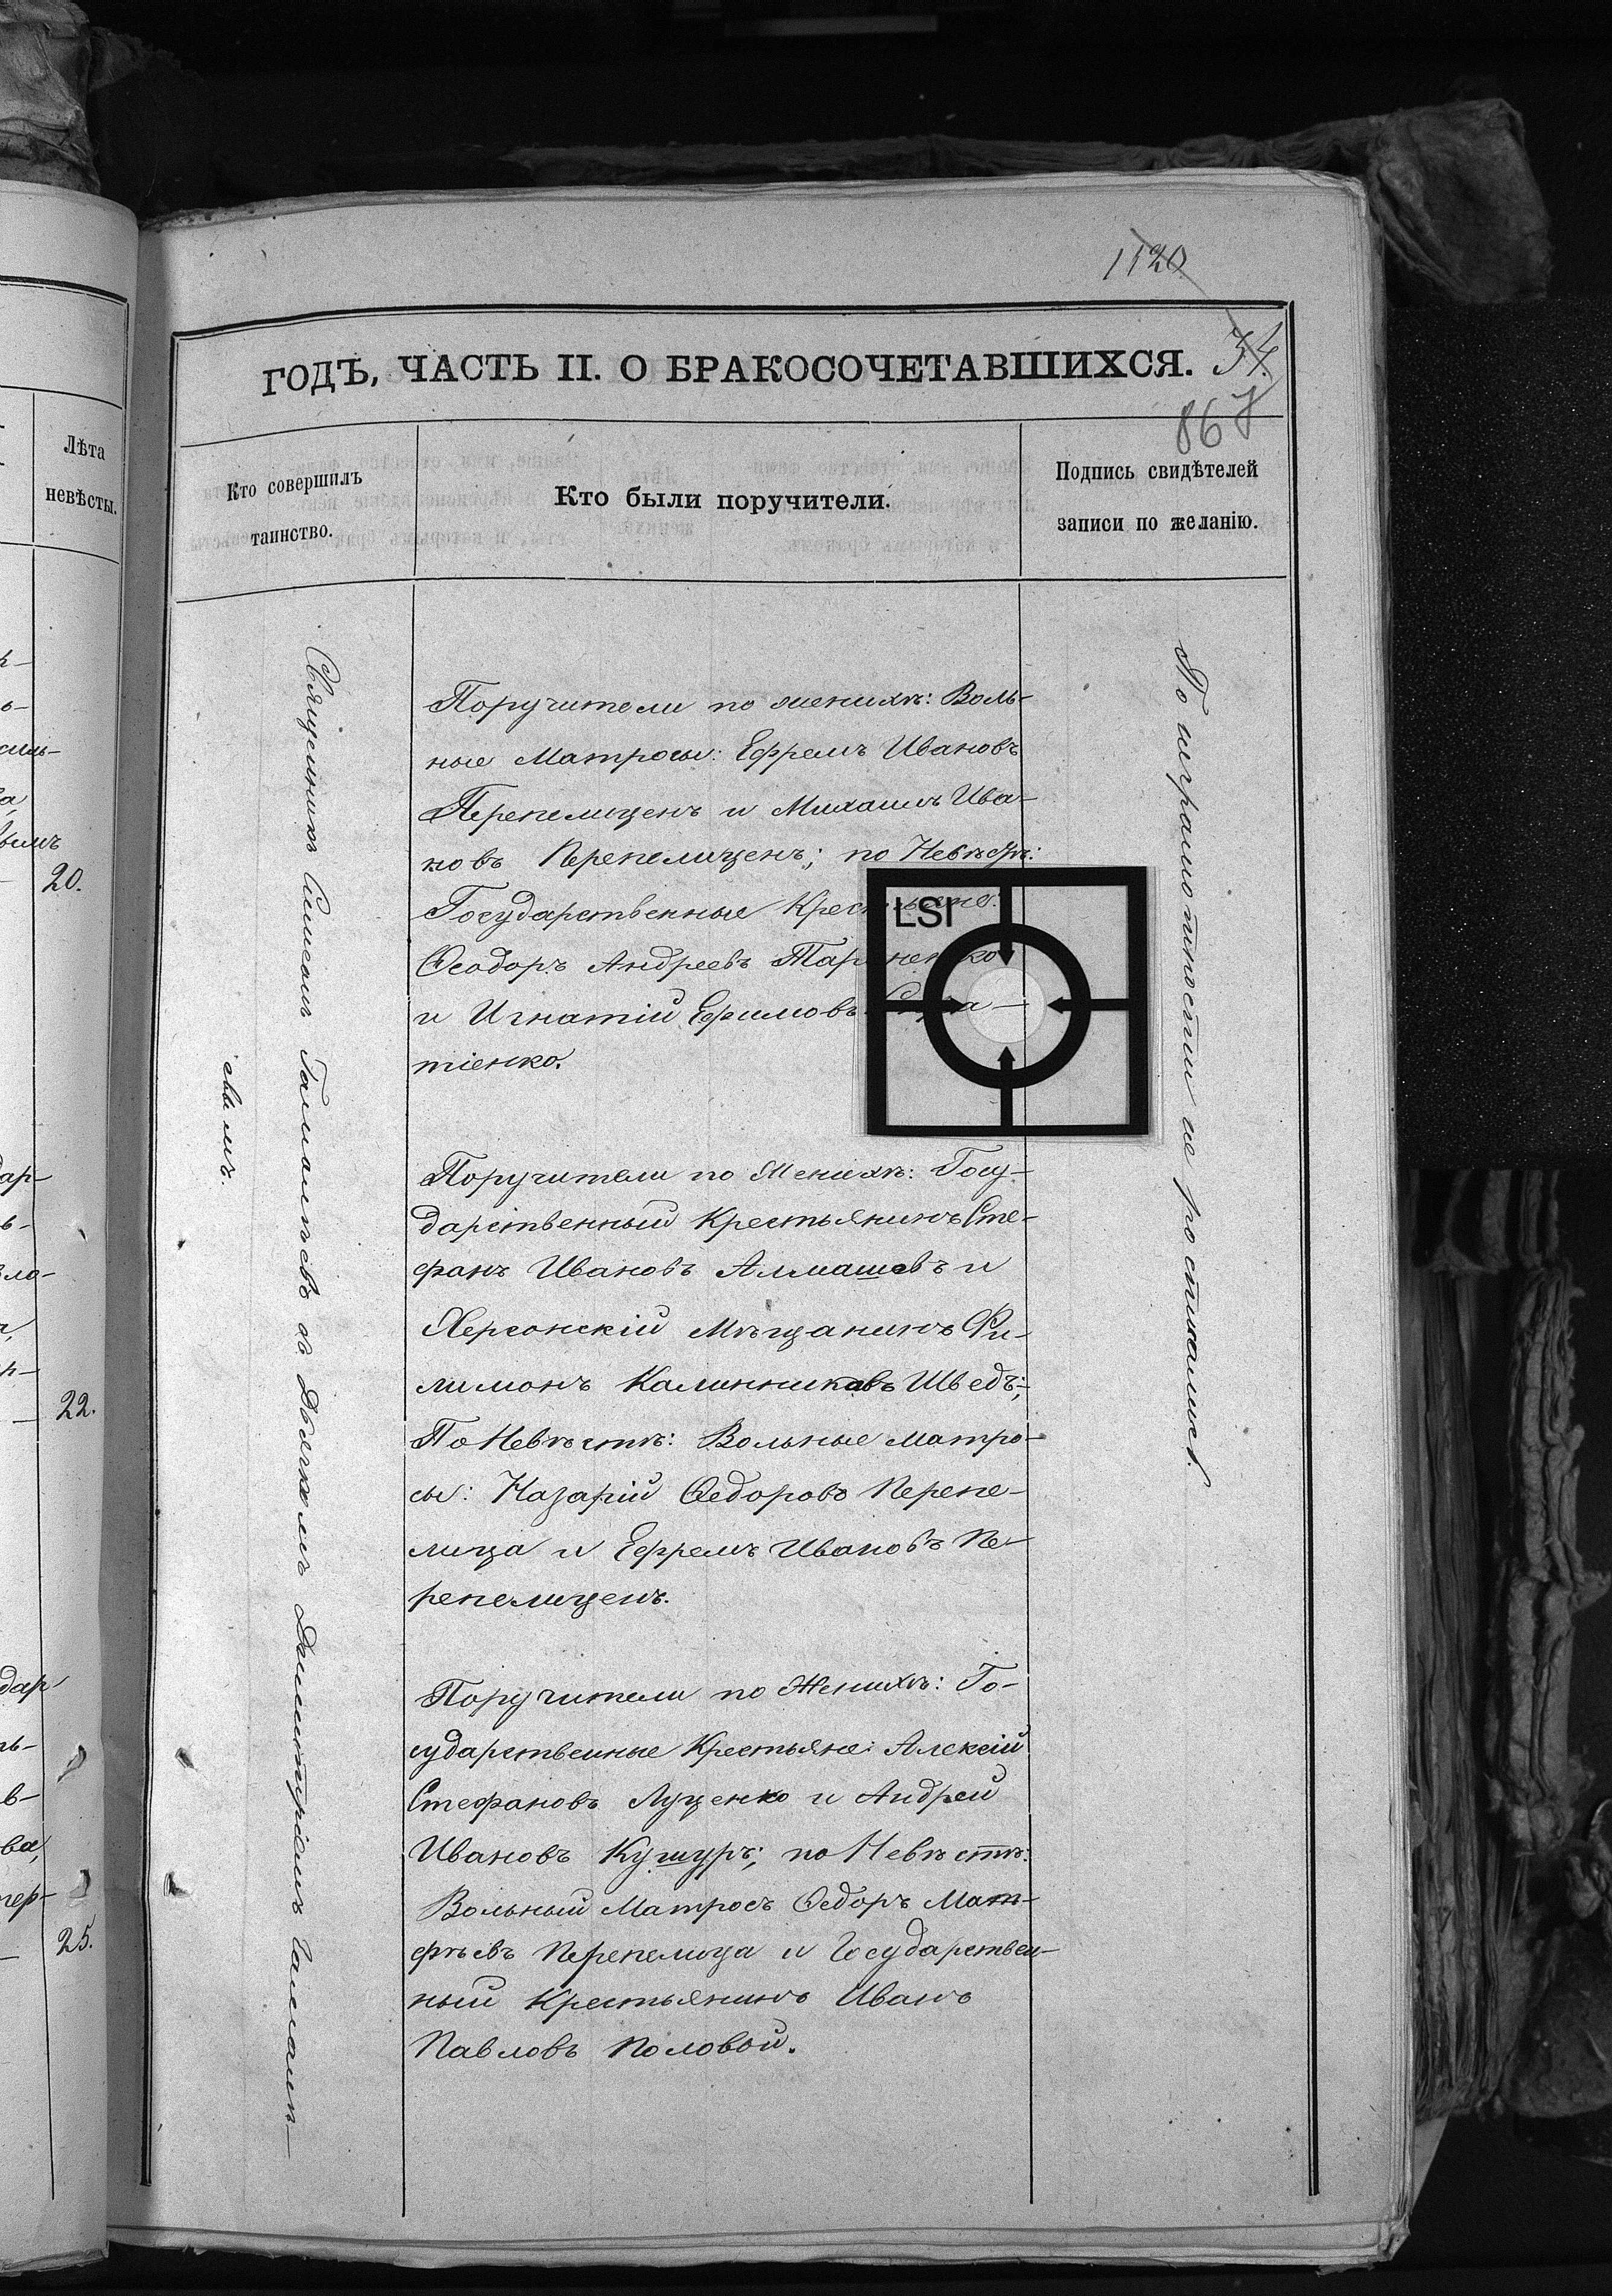 1120
ГОДЪ, ЧАСТЬ II. О БРАКОСОЧЕТАВШИХСЯ.
34.
867
Лѣта
невѣсты.
Кто совершилъ
таинство.
Кто были поручители.
Подпись свидѣтелей
записи по желанію.
20.
22.
25.
Священникъ Симеонъ съ Дьячкомъ Димитріемъ
Поручители по женихѣ: Воль-
ные Матросы: Ефремъ Ивановъ
Перепелиценъ и Михаилъ Ива-
новъ Перепелиценъ; по Невѣстѣ:
Государственные
Ѳеодоръ Андреевъ
и Игнатій Ефимовъ
тіенко.
LSI
Поручители по Женихѣ: Госу-
дарственный Крестьянинъ Сте-
фанъ Ивановъ Алмашовъ и
Херсонскій Мѣщанинъ Фи-
лимонъ Калинниковъ Шведъ;
По Невѣстѣ: Вольные матро-
сы: Назарій Ѳедоровъ Перепе-
лица и Ефремъ Ивановъ Пе-
репелиценъ.
Поручители по Женихѣ: Го-
сударственные Крестьяне: Алексій
Стефановъ Луценко и Андрей
Ивановъ Кушуръ; по Невѣстѣ:
Вольный Матросъ Ѳедоръ Мат-
фѣевъ Перепелица и Государствен-
ный Крестьянинъ Иванъ
Павловъ Половой.
По неграмотности не росписались.